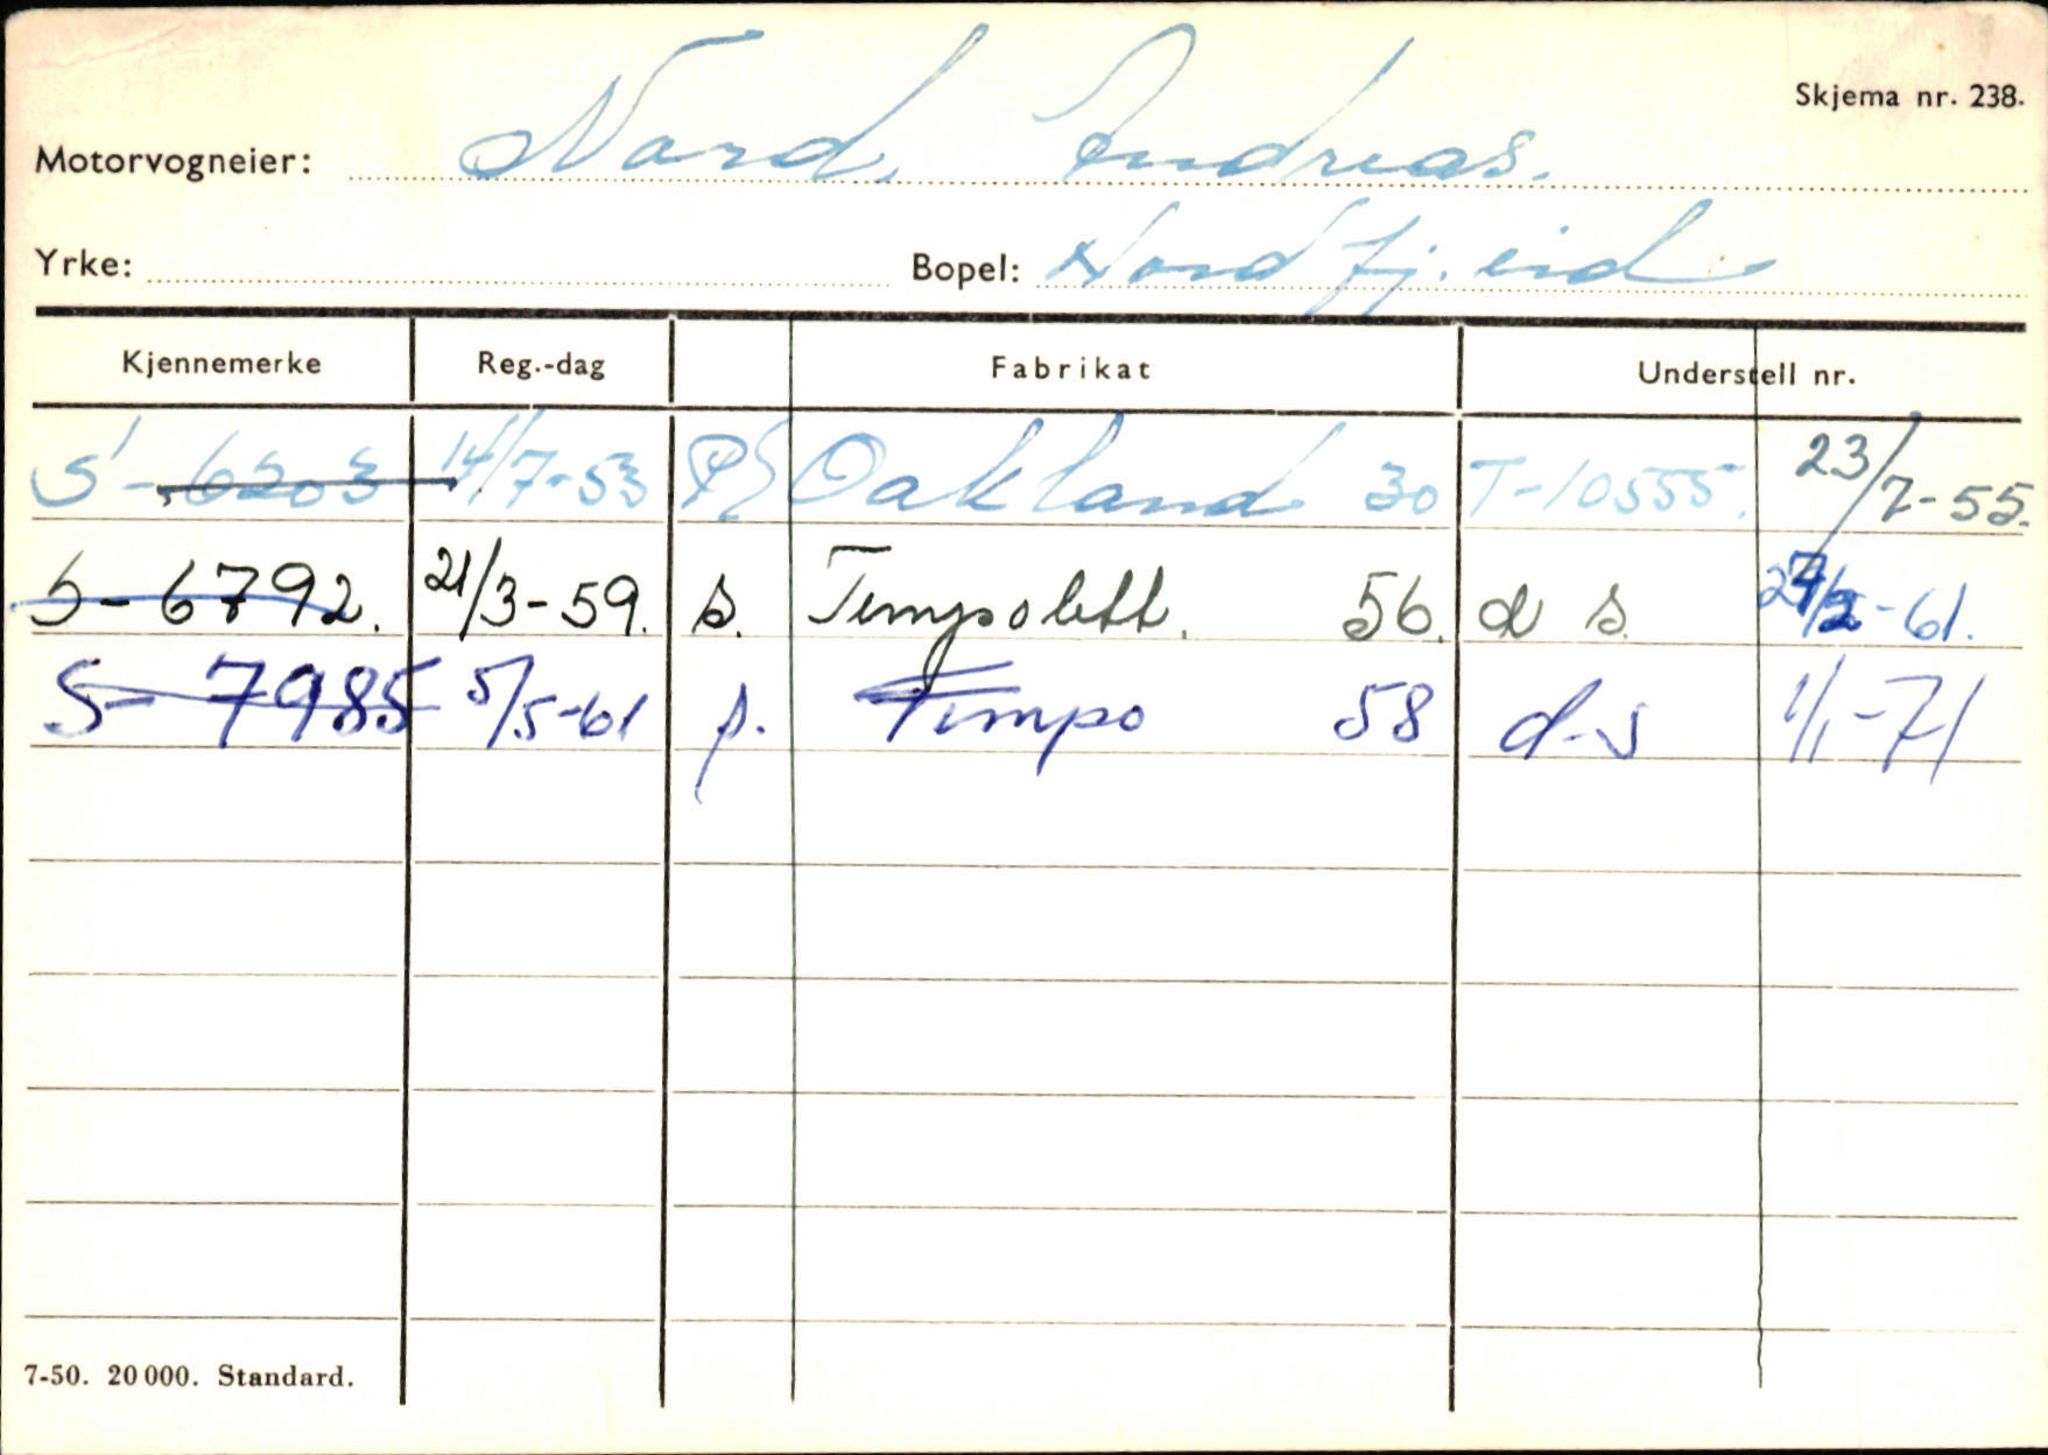 Skjema nr. 238.
Motorvogneier: Nord, Andreas.
Yrke: Bopel: Nordfj.eid
Kjennemerke Reg.-dag Fabrikat Understell nr.
S-6203 14/7-53 P Oakland 30 T-10555. 23/7-55.
S-6792. 21/3-59. s. Tempolett. 56. d s. 24/2-61.
S-7985 5/5-61 p. Tempo 58 d-s 1/1-71
7-50. 20000. Standard.